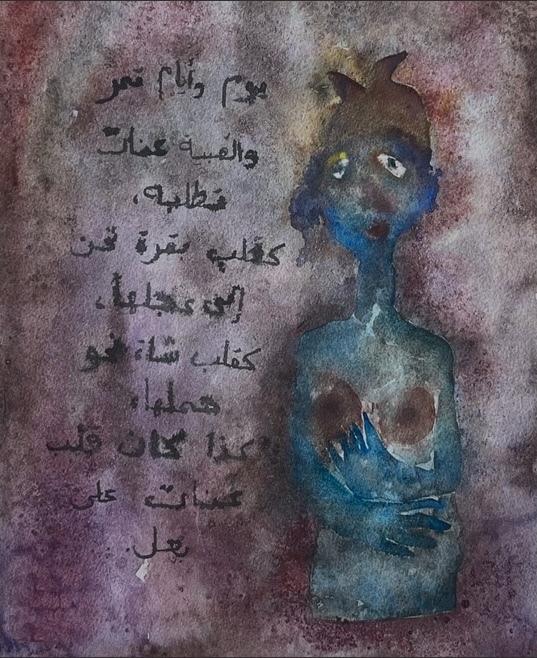 يوم وأيام تمر
والصبية عنات
تطلبه،
كقلب بقرة نحن
إلى عجلها،
كقلب شاة نحو
حملها،
هكذا كان قلب
عنات على
بعل.